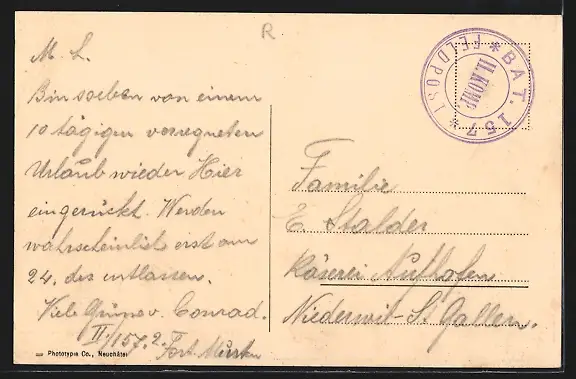 R
M. L.
Bin soeben von einem
10 tägigen verregneten
Urlaub wieder Hier
eingerückt. Werden
wahrscheinlich erst am
24. des entlassen.
Viele Grüsse v. Conrad.
II/157. 2. Fort. Murten
Phototypie Co., Neuchâtel
* BAT. 157 * FELDPOST
II. KOMP.
Familie
E. Stalder
Käserei Aufhofen
Niederwil - St Gallen.